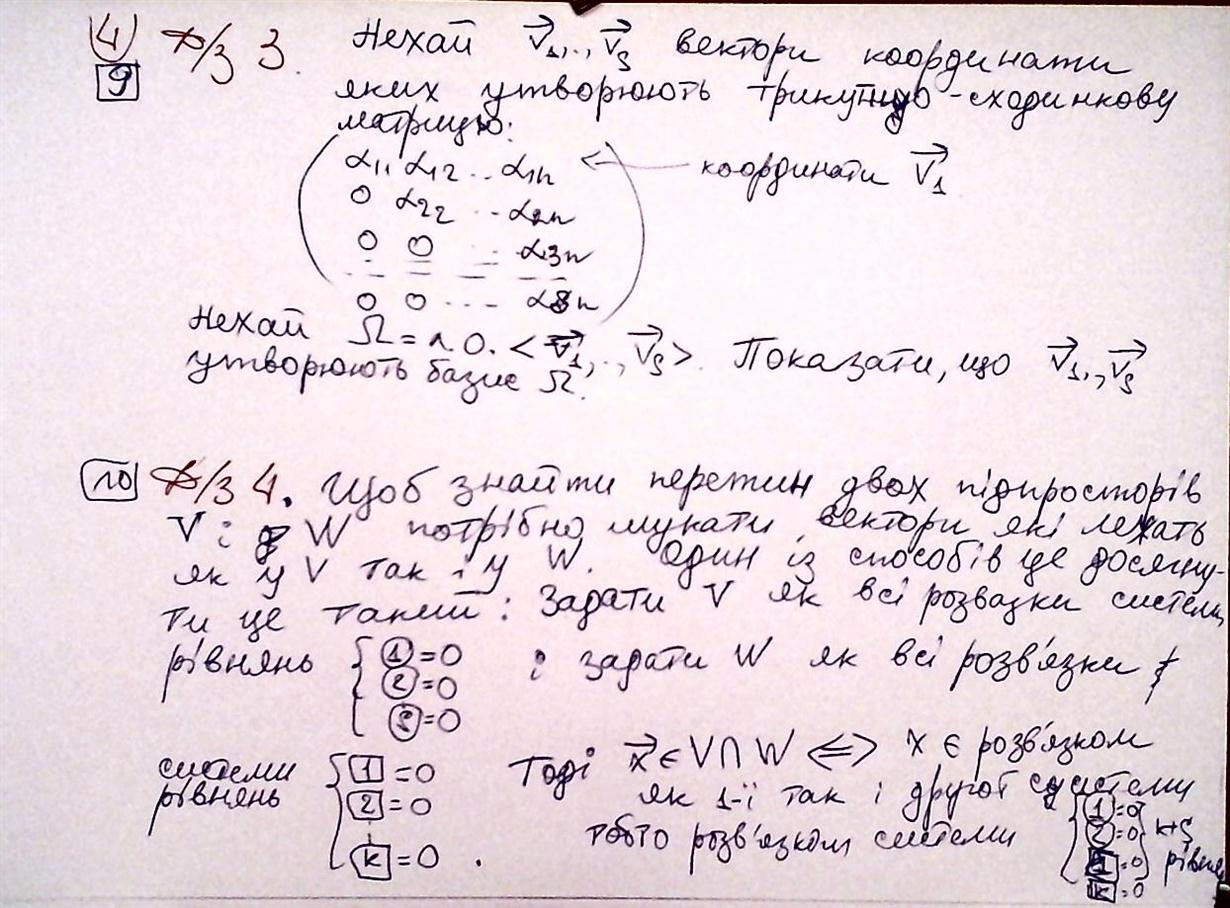 4 Д/З 3. Нехай v₁,..,vₛ вектори координати
9 яких утворюють трикутную-сходинкову
матрицю:
α₁₁ α₁₂ .. α₁ₙ ← координати v₁
0 α₂₂ .. α₂ₙ
0 0 .. α₃ₙ
0 0 ... αₛₙ
Нехай Ω = л.о. <v₁,..,vₛ>. Показати, що v₁,.,vₛ
утворюють базис Ω.
10 Д/З 4. Щоб знайти перетин двох підпросторів
V і W потрібно шукати вектори, які лежать
як у V так і у W. Один із способів це досягну-
ти це такий: Задати V як всі розвазки системи
рівнянь { ①=0 і задати W як всі розв'язки
②=0
Ⓢ=0
системи { [1]=0 Тоді x ∈ V∩W <=> x є розв'язком
рівнянь [2]=0 як 1-ї так і другої системи
[k]=0 . тобто розв'язком системи { ①=0 ②=0 [1]=0 [k]=0 } k+s рівнянь